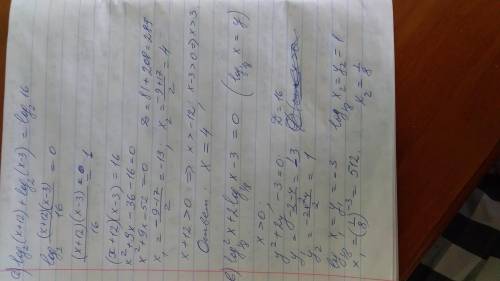 а) log₂(x+12) + log₂(x-3) = log₂ 16
log₂ (x+12)(x-3)/16 = 0
(x+12)(x-3)/16 = 1
(x+12)(x-3) = 16
x² + 9x - 36 - 16 = 0
x² + 9x - 52 = 0 D = 81 + 208 = 289
x₁ = (-9-17)/2 = -13, x₂ = (-9+17)/2 = 4
x+12 > 0 ⇒ x > -12; x-3 > 0 ⇒ x > 3
Ответ: x = 4
log²₁/₈ x + 2 log₁/₈ x - 3 = 0 (log₁/₈ x = y)
x > 0,
y² + 2y - 3 = 0, D = 16
y₁ = (-2-4)/2 = -3
y₂ = (-2+4)/2 = 1
log₁/₈ x₁ = y₁ = -3 log₁/₈ x₂ = y₂ = 1
x₁ = (1/8)⁻³ = 512, x₂ = 1/8